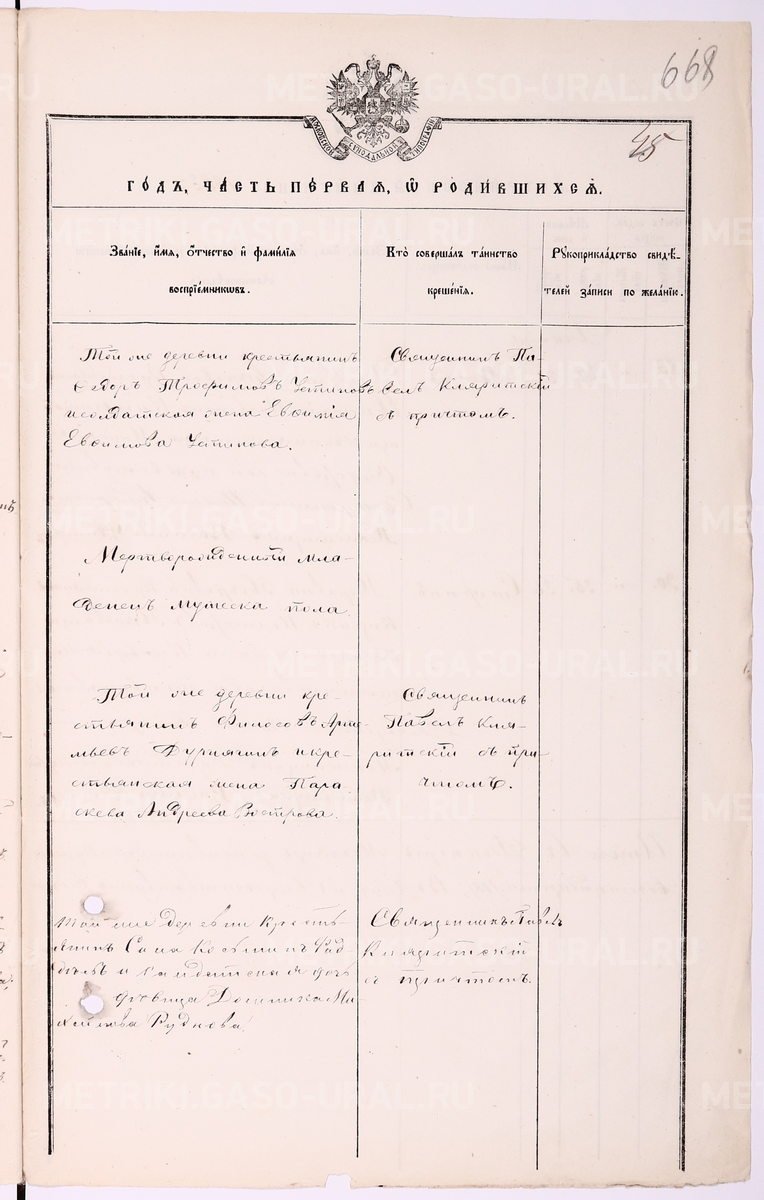 668
45
МОСКОВСКОЙ СѴНОДАЛЬНОЙ ТИПОГРАФІИ
ГОДЪ, ЧАСТЬ ПЕРВАЯ, Ѡ РОДИВШИХСЯ.
Званіе, имя, отчество и фамилія
воспріемниковъ.
Кто совершалъ таинство
крещенія.
Рукоприкладство свидѣ-
телей записи по желанію.
Той же деревни крестьянинъ
Ѳедоръ Трофимовъ Устиновъ
и солдатская жена Евѳимія
Евѳимова Устинова.
Священникъ Па-
велъ Кляритскій
съ причтомъ.
Мертворожденный мла-
денецъ мужеска пола
Той же деревни кре-
стьянинъ Философъ Арте-
мьевъ и кре-
стьянская жена Пара-
скева Андреева
Священникъ
Павелъ Кля-
ритскій съ при-
чтомъ.
Той же деревни кресть-
янинъ Сава Козьминъ
и солдатская дочь
девица Домника Ми-
хайлова Руднова
Священникъ Павелъ
Кляритскій
съ причтомъ.
METRIKI.GASO-URAL.RU